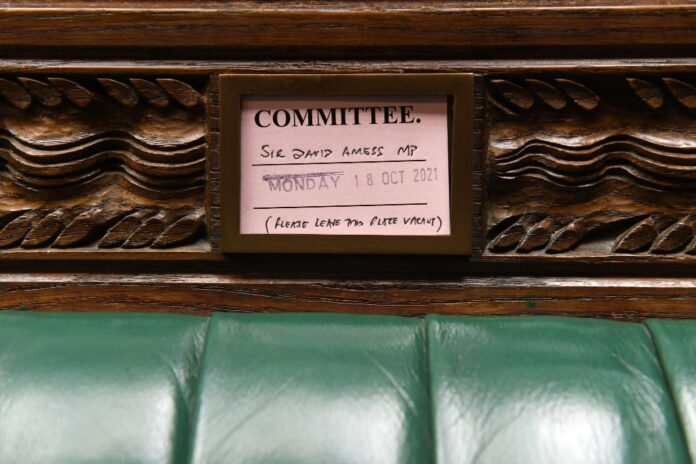 COMMITTEE.
SIR DAVID AMESS MP
MONDAY 18 OCT 2021
(PLEASE LEAVE THIS PLACE VACANT)